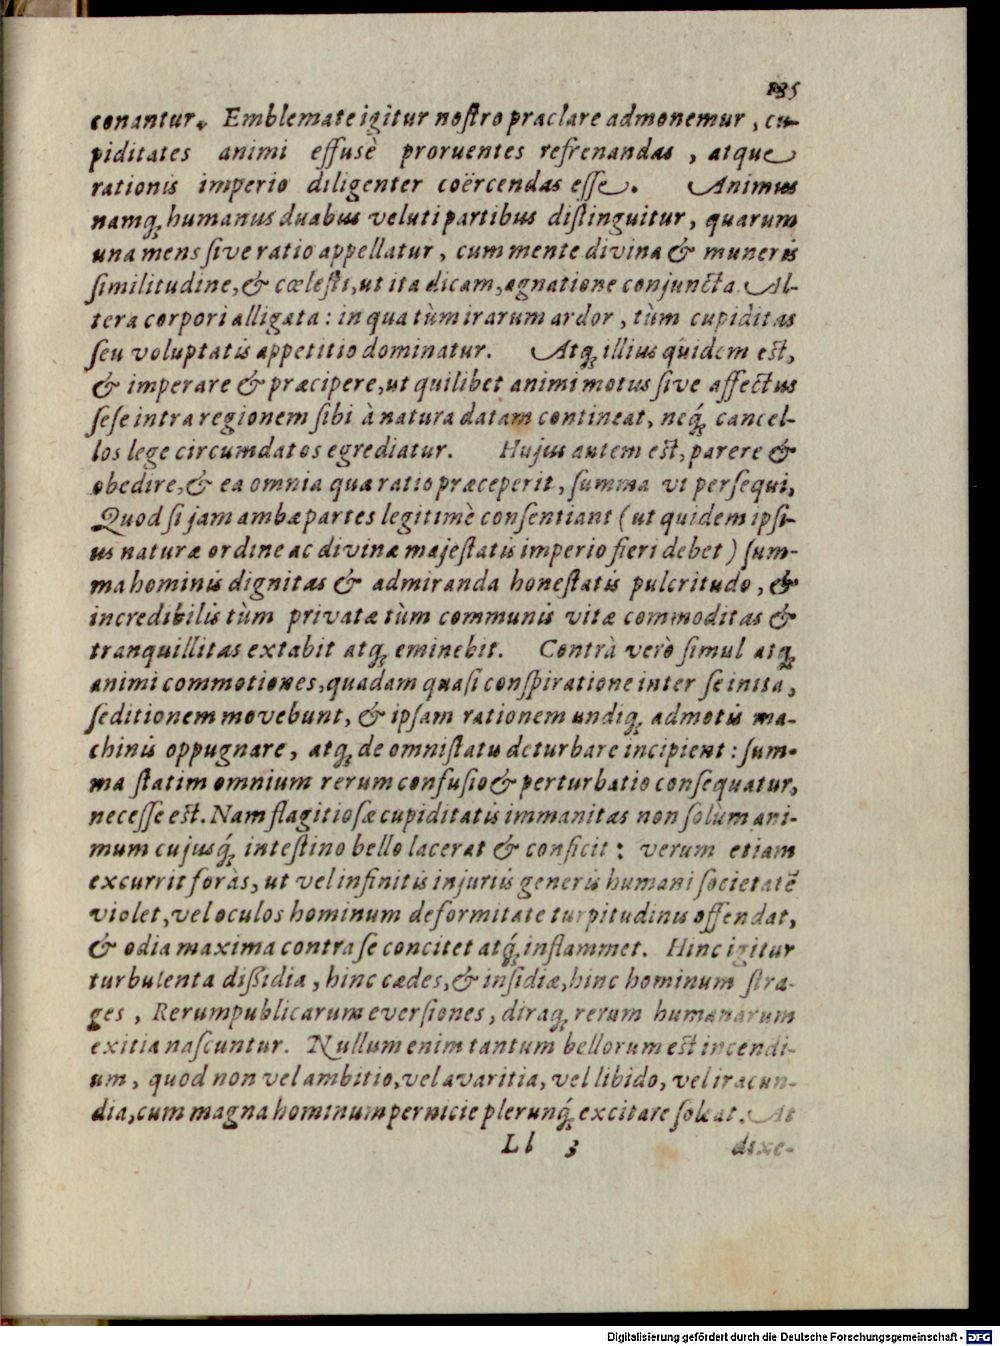 135
conantur. Emblemate igitur nostro praclare admonemur, cu-
piditates animi effusè proruentes refrenandas, atque
rationis imperio diligenter coërcendas esse. Animus
namq́; humanus duabus veluti partibus distinguitur, quarum
una mens sive ratio appellatur, cum mente divina & muneris
similitudine, & cœlesti, ut ita dicam, agnatione conjuncta. Al-
tera corpori alligata: in qua tùm irarum ardor, tùm cupiditas
seu voluptatis appetitio dominatur. Atq; illius quidem est,
& imperare & præcipere, ut quilibet animi motus sive affectus
sese intra regionem sibi à natura datam contineat, neq́; cancel-
los lege circumdatos egrediatur. Hujus autem est, parere &
obedire, & ea omnia qua ratio præceperit, summa vi persequi,
Quod si jam ambæ partes legitimè consentiant (ut quidem ipsi-
us naturæ ordine ac divinæ majestatis imperio fieri debet) sum-
ma hominis dignitas & admiranda honestatis pulcritudo, &
incredibilis tùm privatæ tùm communis vitæ commoditas &
tranquillitas extabit atq; eminebit. Contrà verò simul atq;
animi commotiones, quadam quasi conspiratione inter se inita,
seditionem movebunt, & ipsam rationem undiq; admotis ma-
chinis oppugnare, atq; de omni statu deturbare incipient: sum-
ma statim omnium rerum confusio & perturbatio consequatur,
necesse est. Nam flagitiosæ cupiditatis immanitas non solùm ani-
mum cujusq́; intestino bello lacerat & conficit: verum etiam
excurrit foràs, ut vel infinitis injuriis generis humani societatē
violet, vel oculos hominum deformitate turpitudinis offendat,
& odia maxima contra se concitet atq́; inflammet. Hinc igitur
turbulenta dissidia, hinc cædes, & insidiæ, hinc hominum stra-
ges, Rerumpublicarum eversiones, diraq; rerum humanarum
exitia nascuntur. Nullum enim tantum bellorum est incendi-
um, quod non vel ambitio, vel avaritia, vel libido, vel iracun-
dia, cum magna hominum pernicie plerunq́; excitare soleat. At
Ll 3 dixe-
Digitalisierung gefördert durch die Deutsche Forschungsgemeinschaft - DFG